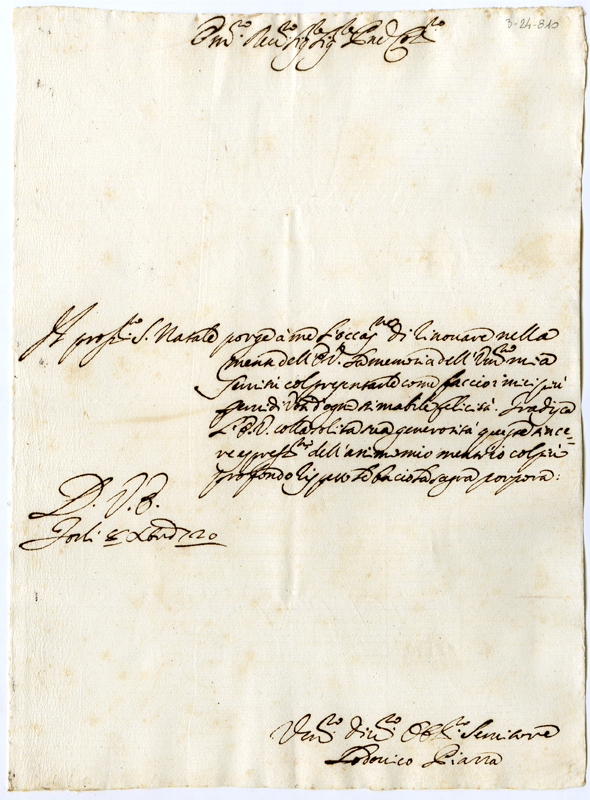 3-24-810
Em.mo Rev.mo Sig.re Sig.re Pad. Col.mo
Il pross.mo S. Natale porge à me l'occas.ne di rinovare nella
mente dell'E.V. la memoria dell'Um.ma mia
Servitù col presentarle come faccio i miei più
d'ogni stimabile felicità. Gradisca
L'E.V. colla solita sua generosità queste since=
re espress.ni dell'animo mio mentre col più
profondo rispetto le bacio la sagra porpora:
D. V. E.
Forlì Xbre 1720
Um.mo Div.mo Obb.mo Servitore
Lodovico